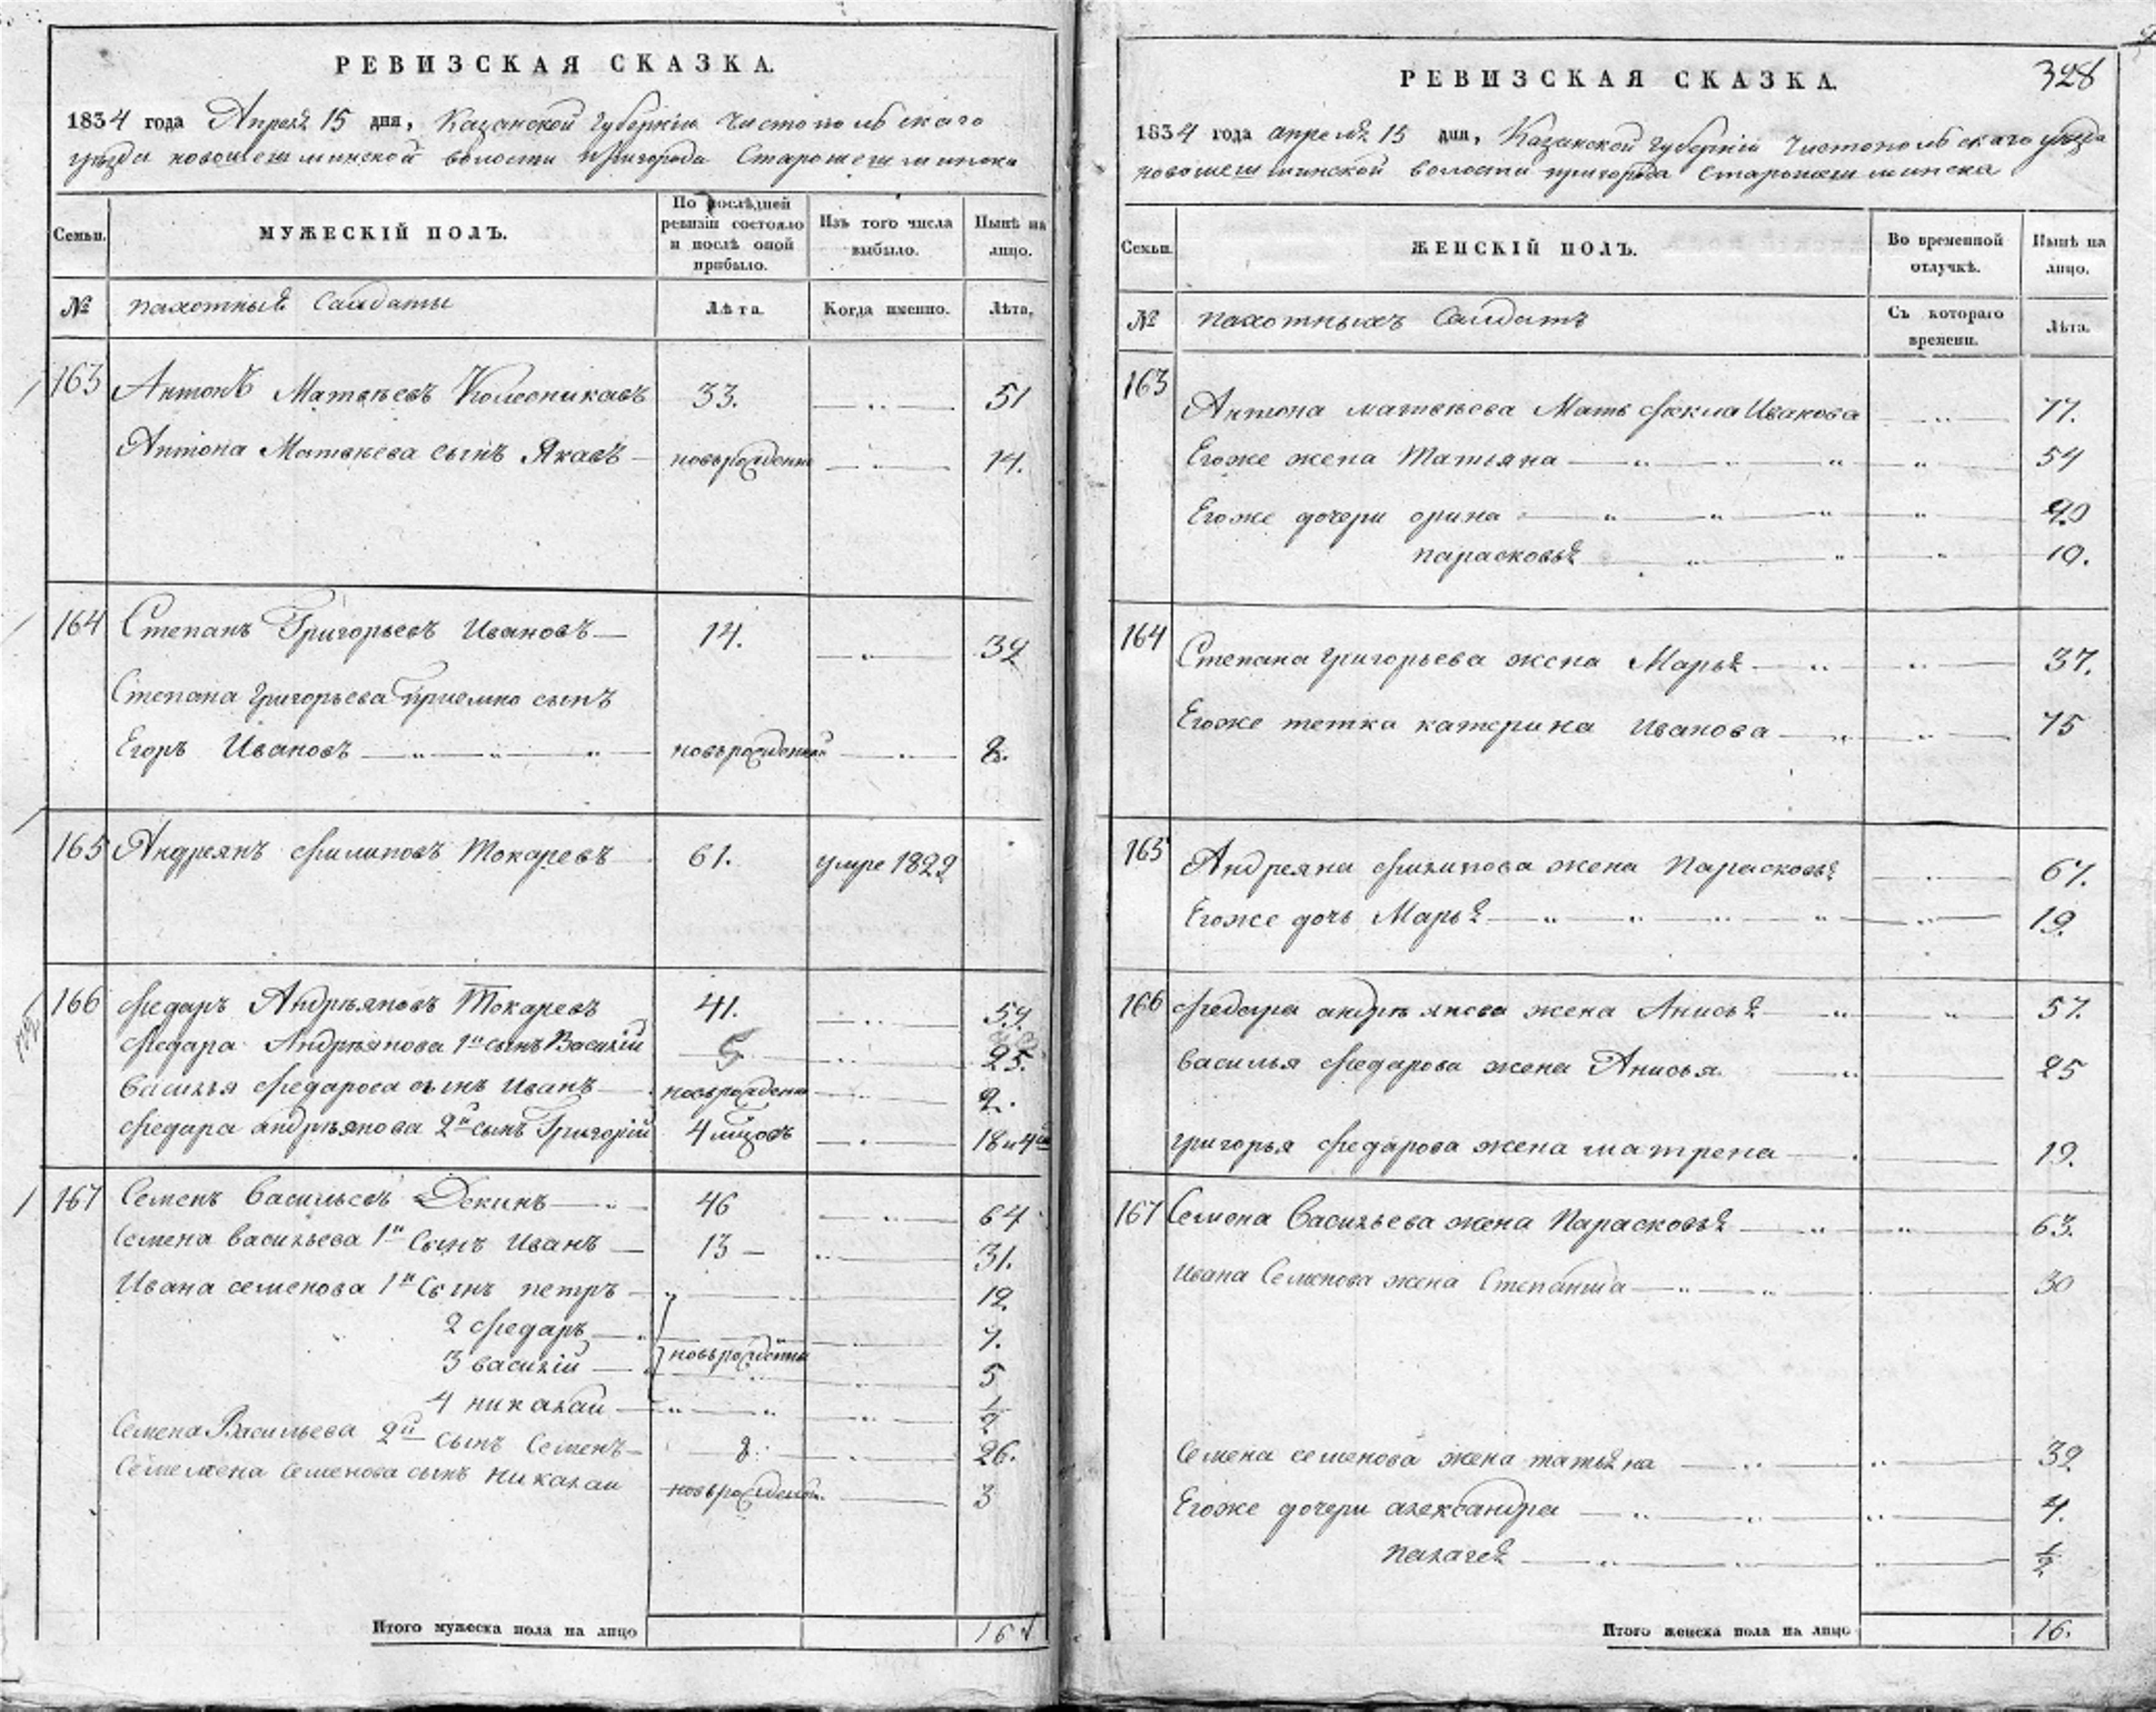 РЕВИЗСКАЯ СКАЗКА.
1834 года Апреля 15 дня, Казанской Губернiи Чистопольскаго
уезда новошешминской волости пригорода Старошешминска
Семьи.
МУЖЕСКІЙ ПОЛЪ.
По послѣдней ревизіи состояло и послѣ оной прибыло.
Изъ того числа выбыло.
Нынѣ на лицо.
№ пахотныя Салдаты
Лѣта.
Когда именно.
Лѣта.
163 Антонъ Матвѣевъ Колесникавъ 33. 51
Антона Матвѣева сынъ Якавъ новърожденны 14.
164 Степанъ Григорьевъ Ивановъ 14. 32
Степана Григорьева приемно сынъ
Егоръ Ивановъ новърожденной 8.
165 Андреянъ Филиповъ Токаревъ 61. умре 1822
166 Федаръ Андрѣяновъ Токаревъ 41. 59.
Федара Андрѣянова 1й сынъ Василій 5 25.
Василья Федарова сынъ Иванъ новърожденны 2.
Федара андрѣянова 2й сынъ Григорій 4 мцовъ 18 и 4м
167 Семенъ Васильевъ Декинъ 46 64
Семена Васильева 1й Сынъ Иванъ 13 31.
Ивана семенова 1й Сынъ петръ 12
2 Федаръ 7.
3 василій новърожденны 5
4 никалаи 1/2
Семена Васильева 2й сынъ Семенъ 8. 26.
Семемена Семенова сынъ никалаи новърожденой. 3
Итого мужеска пола на лицо 16
РЕВИЗСКАЯ СКАЗКА.
328
1834 года апреля 15 дня, Казанской Губернiи Чистопольскаго уезда
новошешминской волости пригорода Старошешминска
Семьи.
ЖЕНСКІЙ ПОЛЪ.
Во временной отлучкѣ.
Нынѣ на лицо.
№ пахотныхъ Салдатъ
Съ котораго времени.
Лѣта.
163
Антона матвѣева Мать Фекла Иванова 77.
Егоже жена Татияна 54
Егоже дочери орина 20
парасковья 10.
164
Степана григорьева жена Марья 37.
Егоже тетка катерина Иванова 75
165
Андреяна Филипова жена Парасковья 67.
Егоже дочь Марья 19.
166 Федара андрѣянова жена Анисья 57.
Василья Федарова жена Анисья 25
григорья Федарова жена матрена 19.
167 Семена Васильева жена Парасковья 63.
Ивана Семенова жена Степанида 30
Семена семенова жена татьяна 32
Егоже дочери александра 4.
палагея 1/2
Итого женска пола на лицо 16.